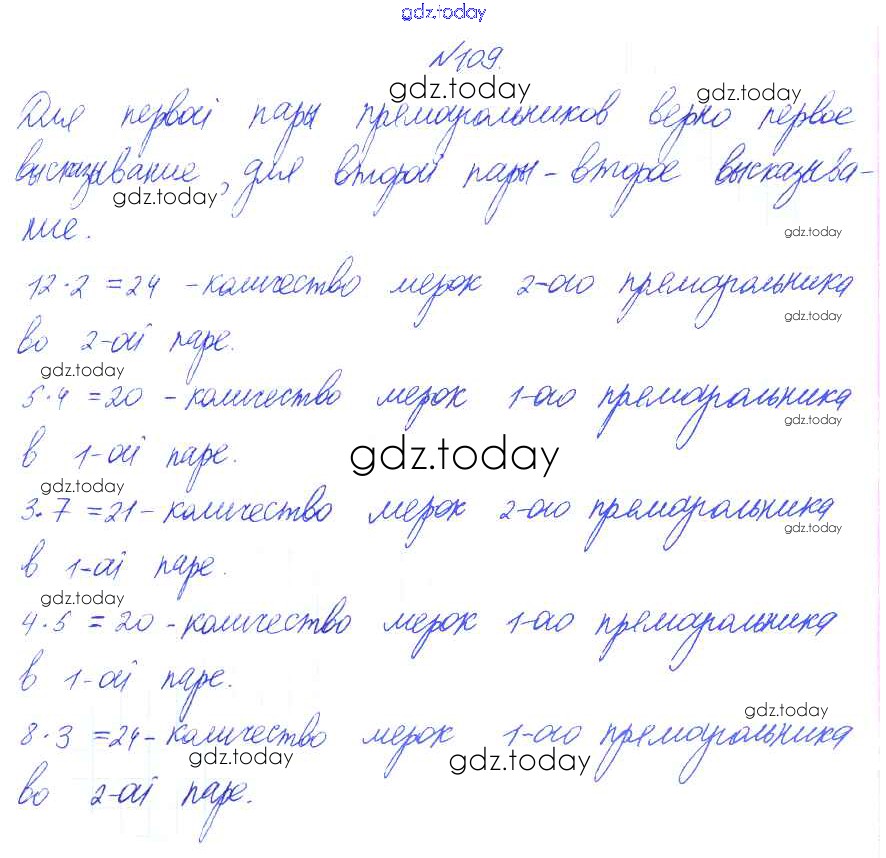 gdz.today
№109.
gdz.today gdz.today
Для первой пары прямоугольников верно первое
высказывание, для второй пары - второе высказыва-
gdz.today
ние.
gdz.today
12·2 = 24 - количество мерок 2-ого прямоугольника
gdz.today
во 2-ой паре.
gdz.today
5·4 = 20 - количество мерок 1-ого прямоугольника
gdz.today
в 1-ой паре.
gdz.today
gdz.today
3·7 = 21 - количество мерок 2-ого прямоугольника
gdz.today
в 1-ой паре.
gdz.today
4·5 = 20 - количество мерок 1-ого прямоугольника
в 1-ой паре.
gdz.today
8·3 = 24 - количество мерок 1-ого прямоугольника
gdz.today gdz.today
во 2-ой паре.